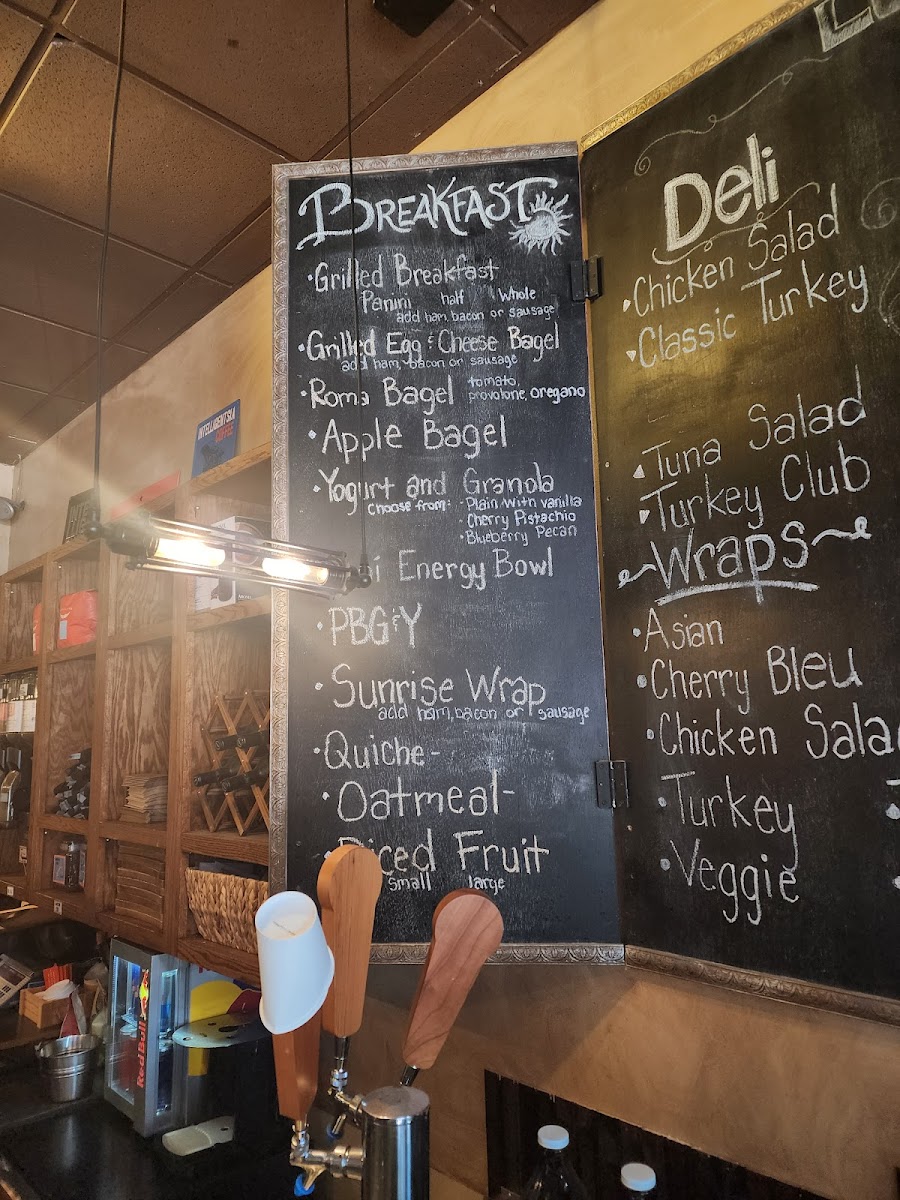 BREAKFAST
·Grilled Breakfast
Panini half Whole
add ham, bacon or sausage
·Grilled Egg & Cheese Bagel
add ham, bacon or sausage
·Roma Bagel tomato, provolone, oregano
·Apple Bagel
·Yogurt and Granola
choose from: · Plain with vanilla
· Cherry Pistachio
· Blueberry Pecan
Energy Bowl
·PBG&Y
·Sunrise Wrap
add ham, bacon or sausage
·Quiche-
·Oatmeal-
Diced Fruit
small large
Deli
·Chicken Salad
·Classic Turkey
·Tuna Salad
·Turkey Club
~Wraps~
·Asian
·Cherry Bleu
·Chicken Sala
·Turkey
·Veggie
INTELLIGENTSIA
COFFEE
Red Bull